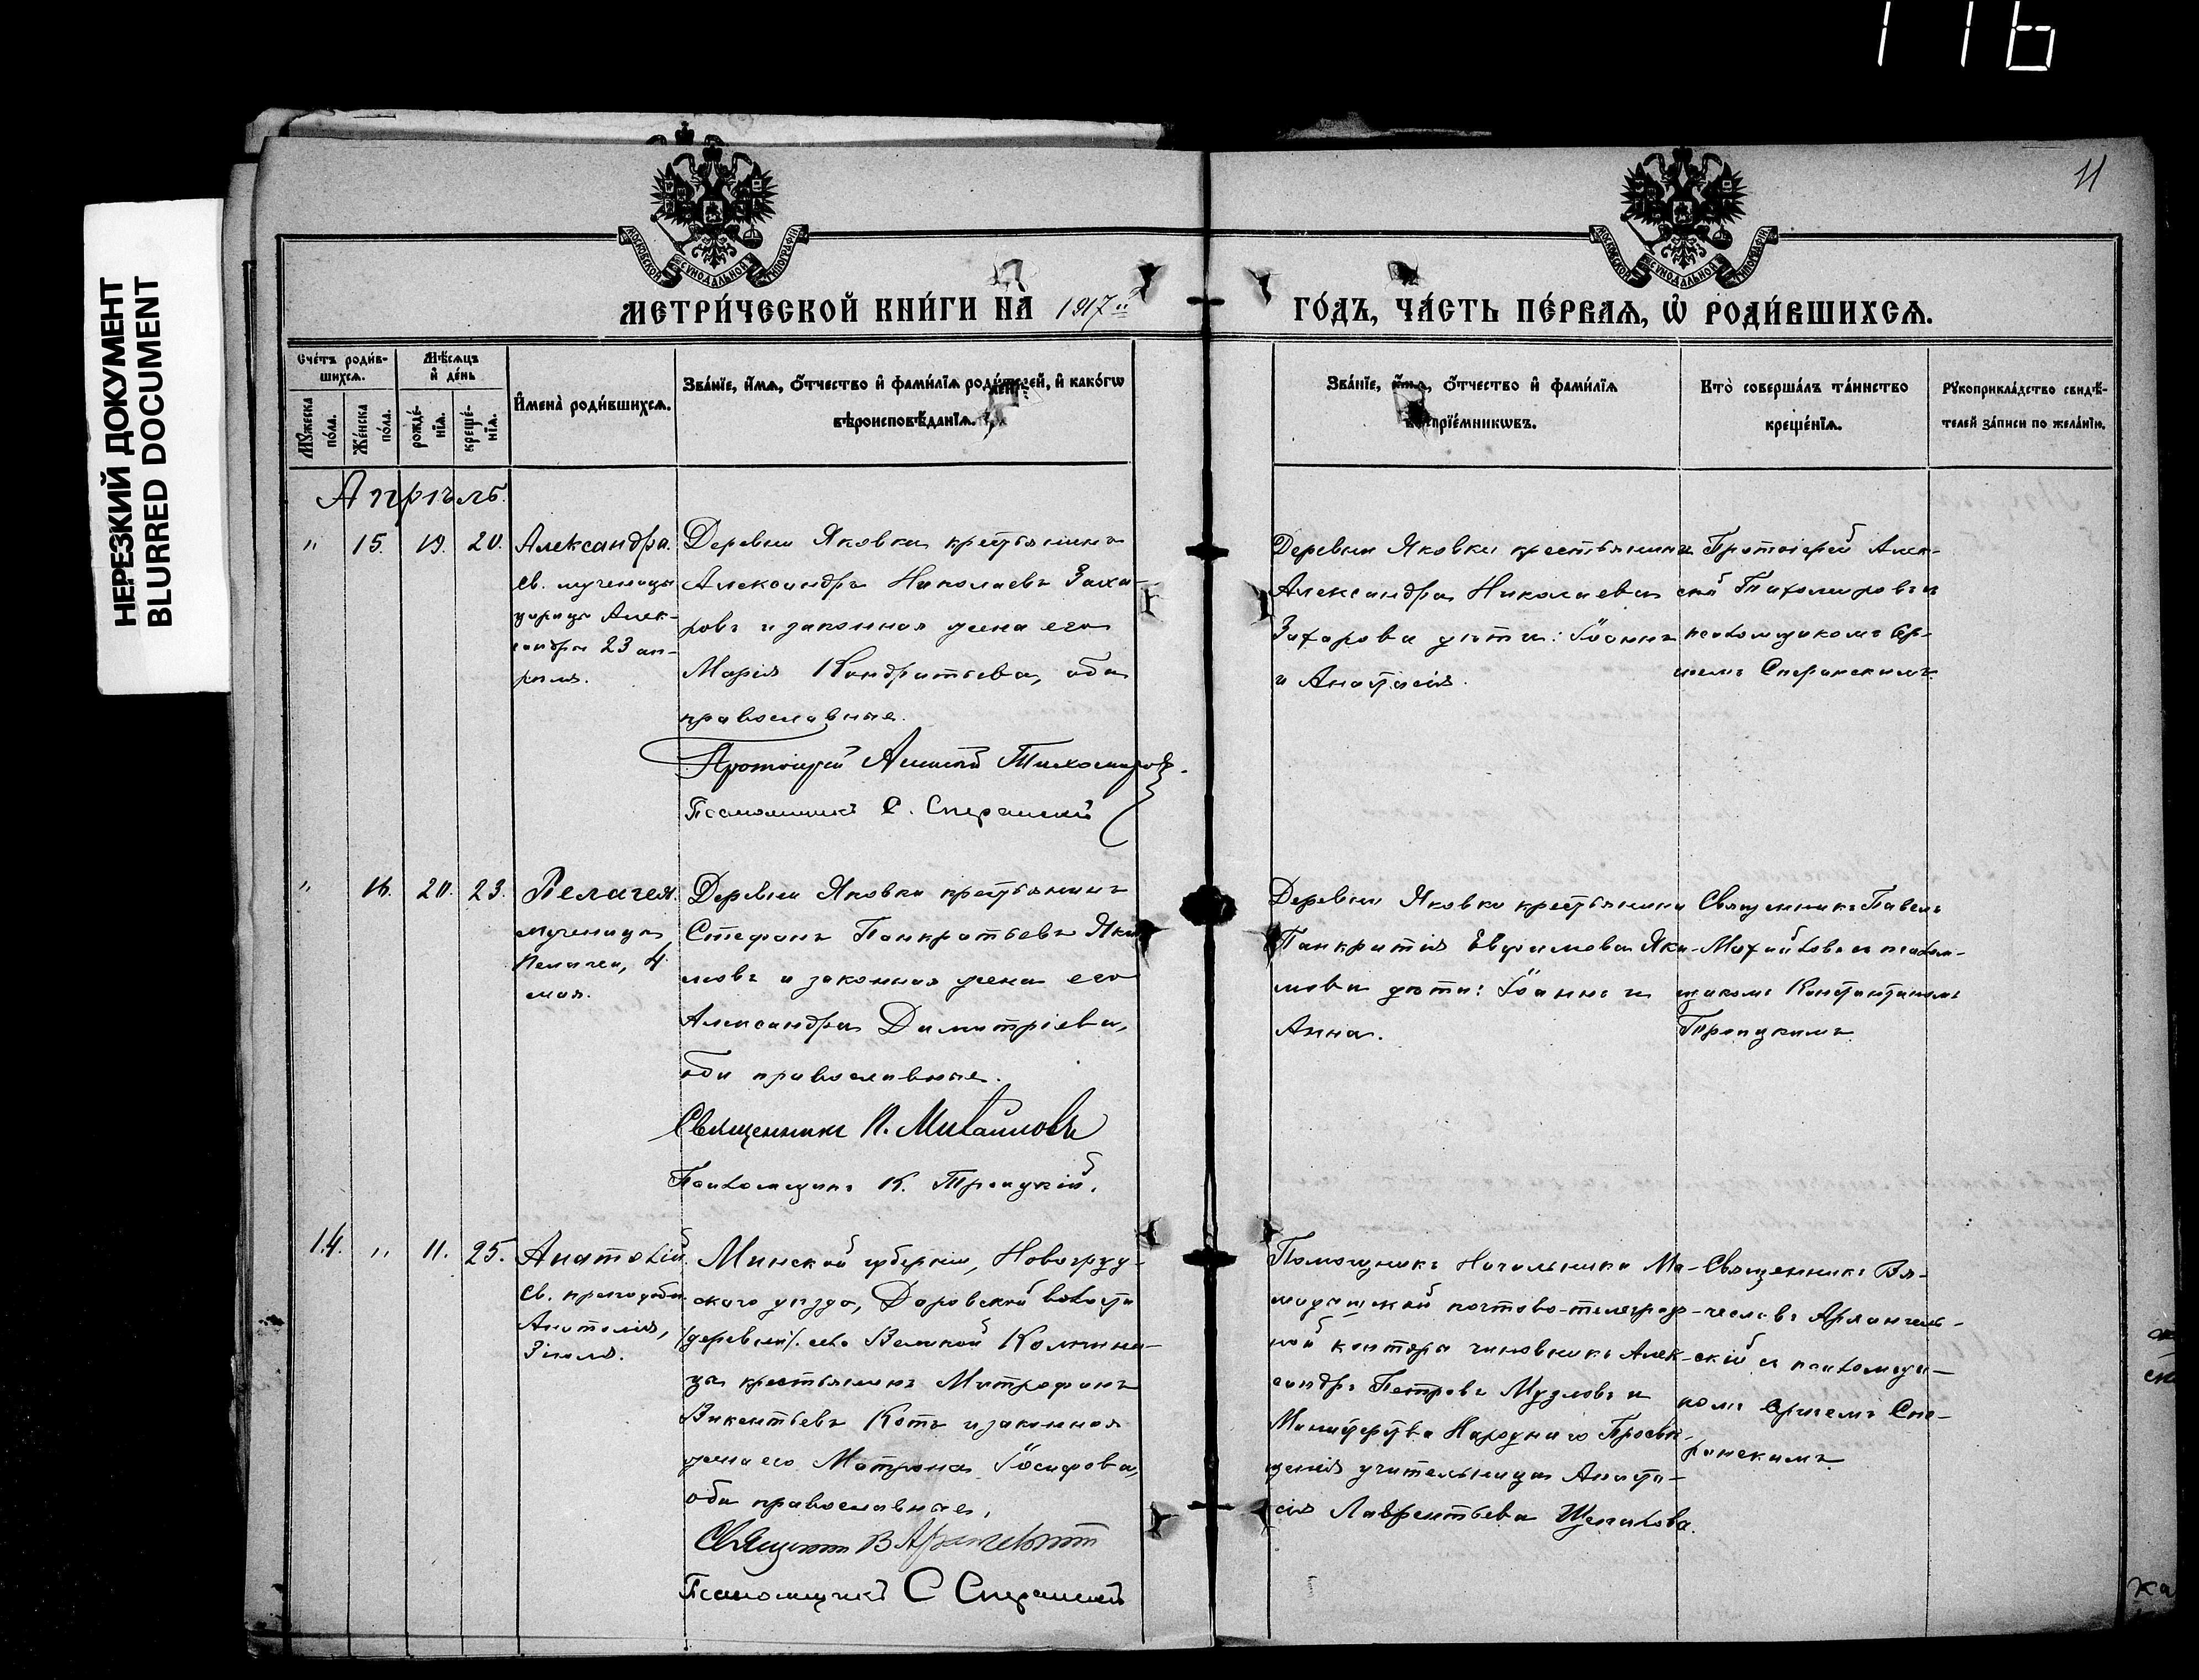 116
11
НЕРЕЗКИЙ ДОКУМЕНТ
BLURRED DOCUMENT
МОСКОВСКОЙ СѴНОДАЛЬНОЙ ТИПОГРАФІИ
МОСКОВСКОЙ СѴНОДАЛЬНОЙ ТИПОГРАФІИ
МЕТРИ́ЧЕСКОЙ КНИ́ГИ НА 1917й ГО́ДЪ, ЧА́СТЬ ПЕ́РВАѦ, Ѡ҆ РОДИ́ВШИХСѦ.
Сче́тъ роди́в-
шихсѧ.
Мꙋ́жеска
по́ла.
Же́нска
по́ла.
Мѣ́сѧцъ
и҆ де́нь
рожде́-
нїѧ.
креще́-
нїѧ.
И҆мена̀ роди́вшихсѧ.
Зва́нїе, и҆́мѧ, ѻ҆́тчество и҆ фами́лїѧ роди́телей, и҆ како́гѡ
вѣроисповѣ́данїѧ.
Зва́нїе, и҆́мѧ, ѻ҆́тчество и҆ фами́лїѧ
воспрїе́мникѡвъ.
Кто̀ соверша́лъ та́инство
креще́нїѧ.
Рꙋкоприкла́дство свидѣ́-
телей за́писи по жела́нїю.
Апрѣль.
" 15. 19. 20.
Александра.
св. мученицы
царицы Алек-
сандры 23 ап-
рѣля.
Деревни Яковки крестьянинъ
Александръ Николаевъ Заха-
ровъ и законная жена его
Марія Кондратьева, оба
православные.
Протоіерей Алексій Тихомировъ.
Псаломщикъ С. Сперанскій
Деревни Яковки крестьянина
Александра Николаева
Захарова дѣти: Іоаннъ
и Анастасія.
Протоіерей Алек-
сій Тихомировъ и
псаломщикомъ Сер-
гіемъ Сперанскимъ.
" 16. 20. 23.
Пелагея.
мученицы
Пелагеи, 4
мая.
Деревни Яковки крестьянинъ
Стефанъ Панкратьевъ Яки-
мовъ и законная жена его
Александра Димитріева,
оба православные.
Священникъ П. Михайловъ
Псаломщикъ К. Троицкій.
Деревни Яковки крестьянина
Панкратія Евфимова Яки-
мова дѣти: Іоаннъ и
Анна.
Священникъ Павелъ
Михайловъ и псалом-
щикомъ Константиномъ
Троицкимъ.
14. " 11. 25.
Анатолій.
св. преподобн.
Анатолія,
3 іюля.
Минской губерніи, Новогруд-
скаго уѣзда, Даровской волости
/деревни/. села Великой Колпени-
цы крестьянинъ Митрофанъ
Викентьевъ Котъ и законная
жена его Матрона Іосифова,
оба православные,
Священникъ В Архангельскій
Псаломщикъ С Сперанскій
Помощникъ Начальника Ма-
мадышской почтово-телеграф-
ной конторы чиновникъ Алек-
сандръ Петровъ Музловъ и
Министерства Народнаго Просвѣ-
щенія учительница Анаста-
сія Лаврентьева Щепалова.
Священникъ Вя-
чеславъ Архангель-
скій съ псаломщи-
комъ Сергіемъ Спе-
ранскимъ.